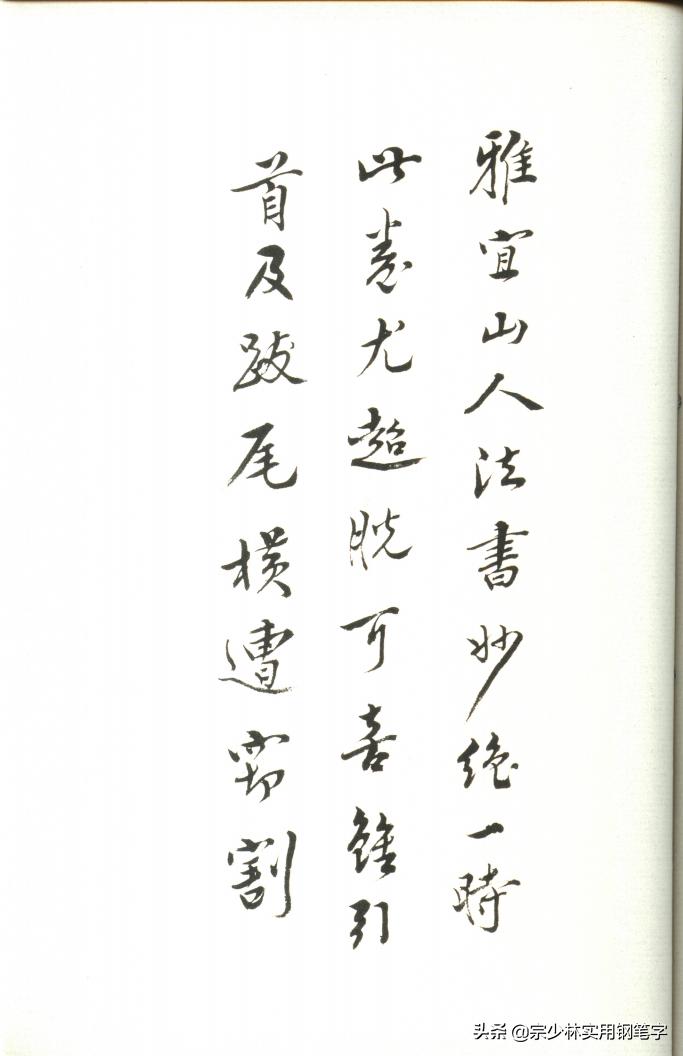 雅宜山人法書妙絶一時
此卷尤超脱可喜雖引
首及跋尾横遭窃割
头条 @宗少林实用钢笔字